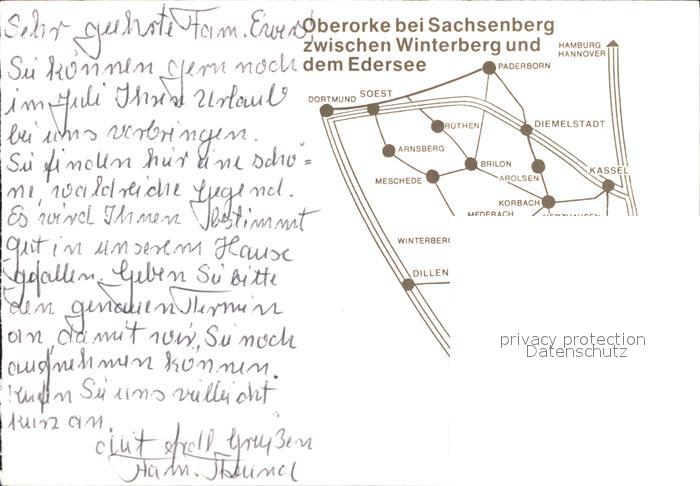 Sehr geehrte Fam.
Sie können gern noch
im Juli Ihren Urlaub
bei uns verbringen.
Sie finden hier eine schö=
ne, waldreiche Gegend.
Es wird Ihnen bestimmt
gut in unserem Hause
gefallen. Geben Sie bitte
den genauen Termin
an, damit wir Sie noch
aufnehmen können.
Rufen Sie uns vielleicht
kurz an.
Mit frdl. Grüßen
Fam.
Oberorke bei Sachsenberg
zwischen Winterberg und
dem Edersee
HAMBURG
HANNOVER
PADERBORN
DORTMUND
SOEST
RÜTHEN
DIEMELSTADT
ARNSBERG
BRILON
MESCHEDE
AROLSEN
KASSEL
KORBACH
MEDEBACH
WINTERBERG
DILLEN
privacy protection
Datenschutz